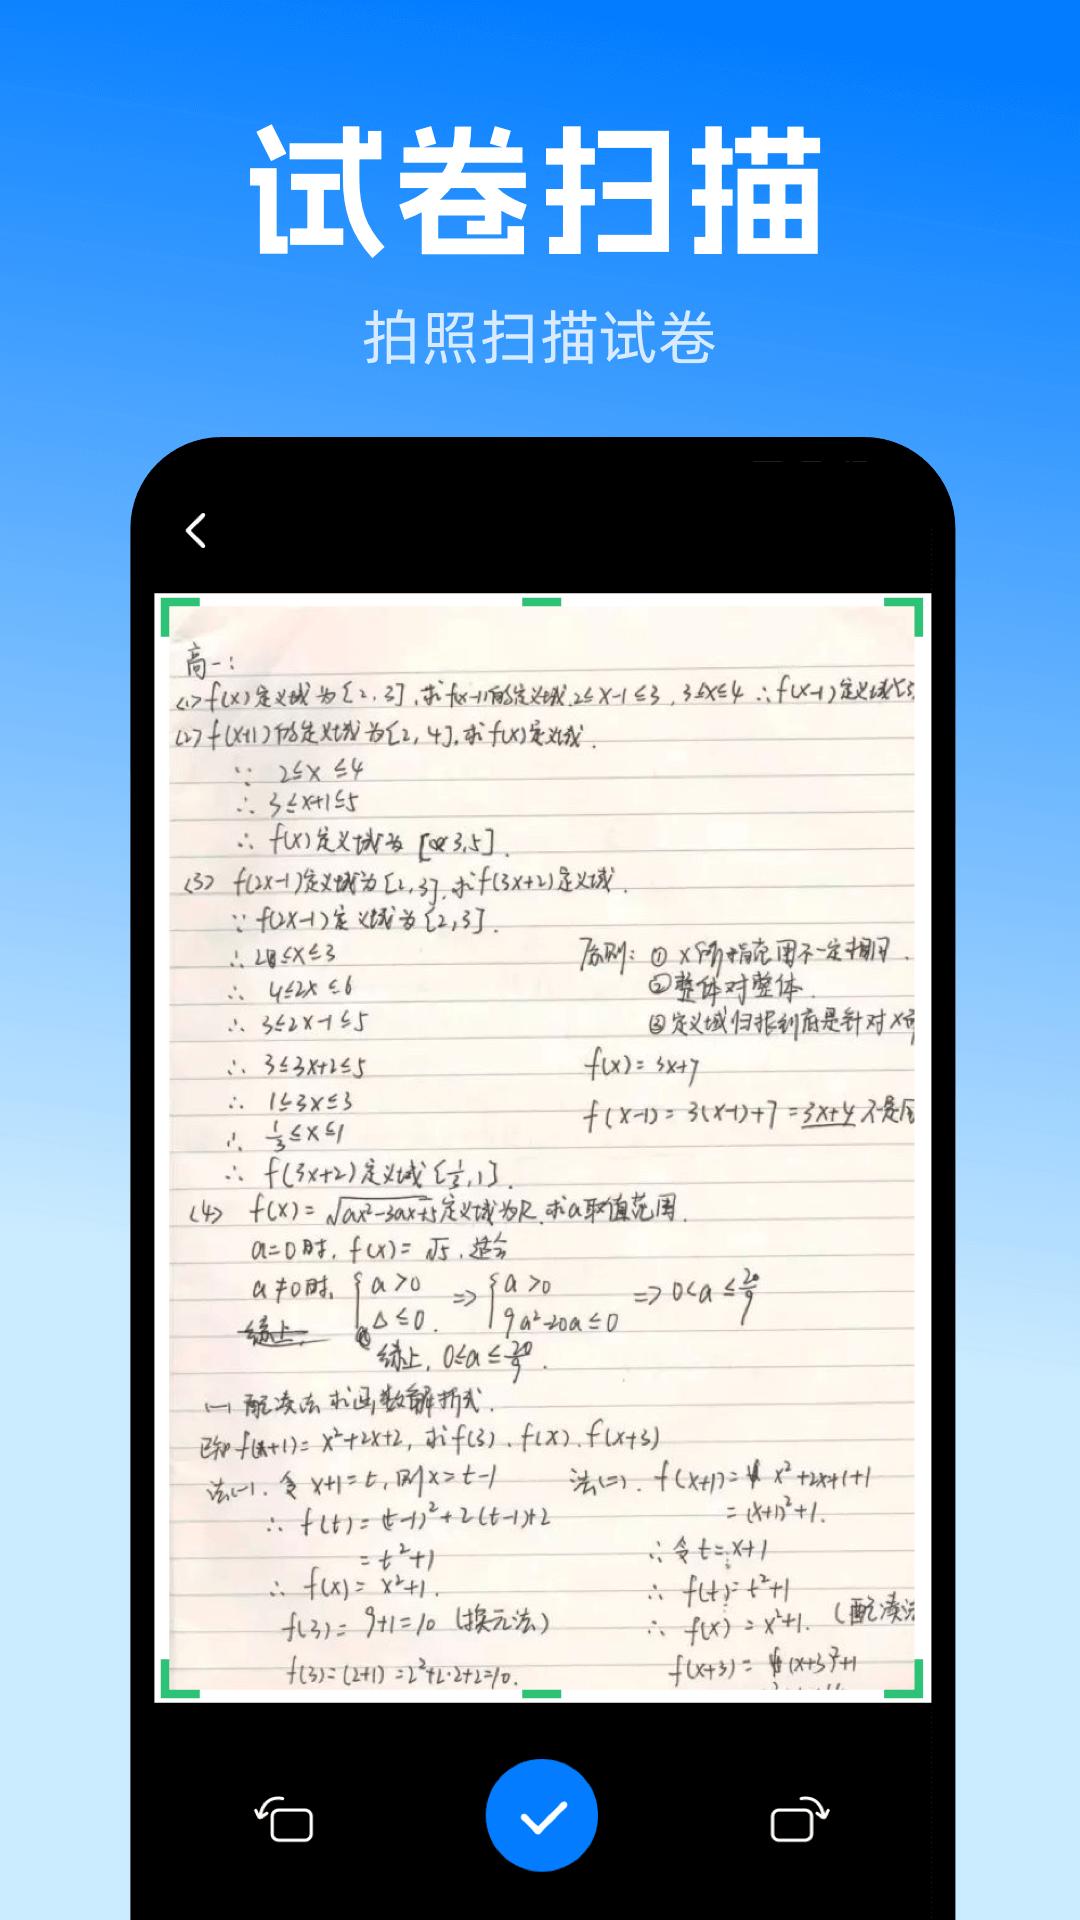 试卷扫描
拍照扫描试卷
高一:
(1) f(x)定义域为[2,3],求f(x-1)的定义域.2≤x-1≤3,3≤x≤4 ∴f(x-1)定义域[3,
(2) f(x+1)的定义域为[2,4],求f(x)定义域.
∵ 2≤x≤4
∴ 3≤x+1≤5
∴ f(x)定义域为 [3,5].
(3) f(2x-1)定义域为[2,3],求f(3x+2)定义域.
∵ f(2x-1)定义域为[2,3].
∴ 2≤x≤3
∴ 4≤2x≤6
∴ 3≤2x-1≤5
∴ 3≤3x+2≤5
∴ 1≤3x≤3
∴ 1/3≤x≤1
∴ f(3x+2)定义域[1/3,1].
原则: ① x所指范围不一定相同.
②整体对整体.
③定义域归根到底是针对x而
f(x)=3x+7
f(x-1)=3(x-1)+7=3x+4 不是
(4) f(x)=√(ax²-3ax+5)定义域为R,求a取值范围.
a=0时,f(x)=√5,适合
a≠0时, {a>0 => {a>0 => 0<a≤20/9
Δ≤0. 9a²-20a≤0
综上, 0≤a≤20/9.
(一)配凑法求函数解析式.
已知f(x+1)=x²+2x+2,求f(3).f(x).f(x+3)
法(一).令x+1=t,则x=t-1
∴ f(t)=(t-1)²+2(t-1)+2
=t²+1
∴ f(x)=x²+1.
f(3)=9+1=10 (换元法)
f(3)=(2+1)=2²+2·2+2=10.
法(二). f(x+1)= x²+2x+1+1
=(x+1)²+1.
∴令t=x+1
∴ f(t)=t²+1
∴ f(x)=x²+1. (配凑法
f(x+3)= (x+3)²+1